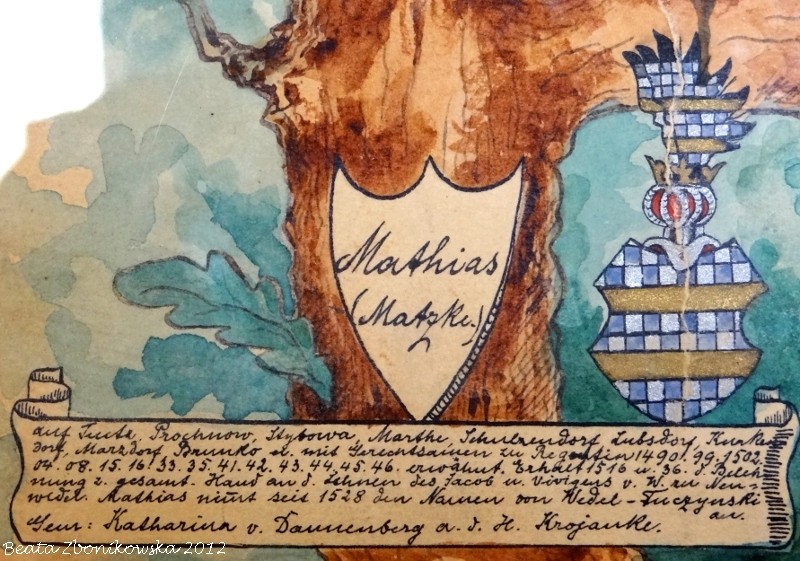 Mathias
(Matzke.)
auf Tuetz, Prochnow, Stybowa, Marthe, Schulzendorf, Lubsdorf, Knaken
dorf, Marzdorf, Brunko u. mit Gerechtsamen zu Regentin 1490. 99. 1502.
04. 08. 15. 16. 33. 35. 41. 42. 43. 44. 45. 46. erwähnt. Erhält 1516 u. 36. d. Beleh
nung z. gesamt. Hand an d. Lehnen des Jacob u. Vivigens v. W. zu Neu-
wedel. Mathias nimt seit 1528 den Namen von Wedel-Tuczynski
an.
Gem: Katharina v. Dannenberg a. d. H. Krojanke.
Beata Zbonikowska 2012